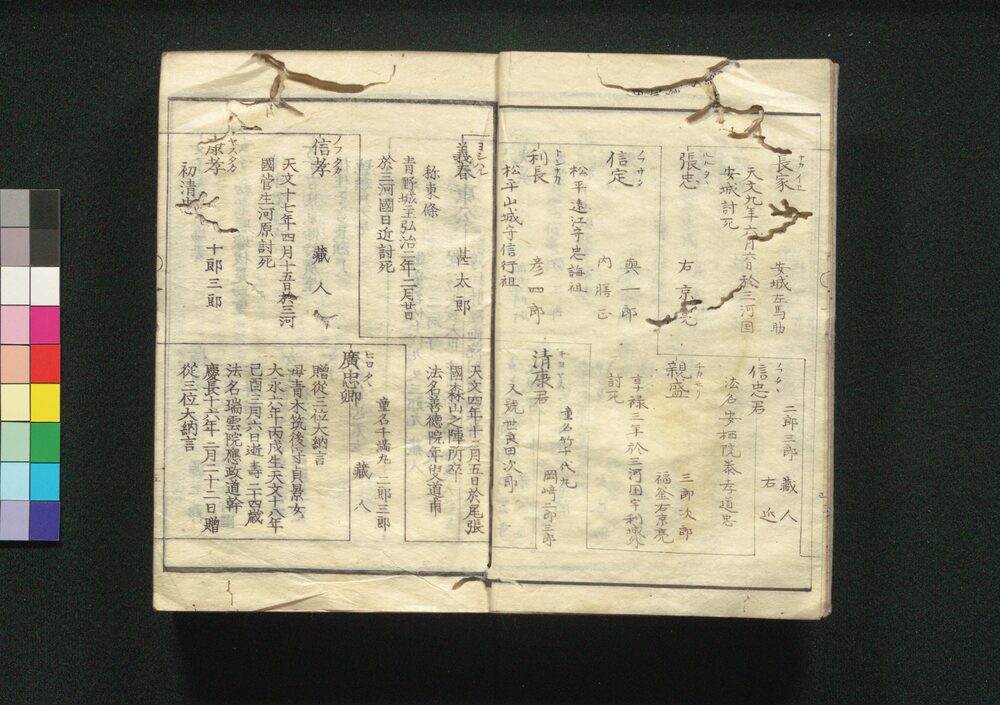 ナカイエ
長家
安城左馬助
天文九年六月六日於三河国
安城討死
ハルタヽ
張忠
右京亮
ノフサタ
信定
與一郎
内膳正
松平遠江守忠誨祖
トシナカ
利長
彦四郎
松平山城守信行祖
ノフタヽ
信忠君
二郎三郎
藏人
右近
法名安栖院泰孝道忠
チカモリ
親盛
三郎次郎
福釜右京亮
享禄三年於三河国宇利城外
討死
キヨヤス
清康君
童名竹千代九
岡﨑二郎三郎
又號世良田次郎
ヨシハル
義春
甚太郎
称東條
青野城主弘治二年二月廿日
於三河國日近討死
ノフタカ
信孝
藏人
天文十七年四月十五日於三河
國菅生河原討死
ヤスタカ
康孝
十郎三郎
初清
天文四年十二月五日於尾張
國森山之陣所卒
法名善德院年叟道甫
ヒロタヽ
廣忠卿
藏人
童名千滿九 二郎三郎
贈從三位大納言
母青木筑後守貞景女
大永六年丙戌生天文十八年
己酉三月六日逝壽二十四歳
法名瑞雲院應政道幹
慶長十六年二月二十二日贈
從三位大納言